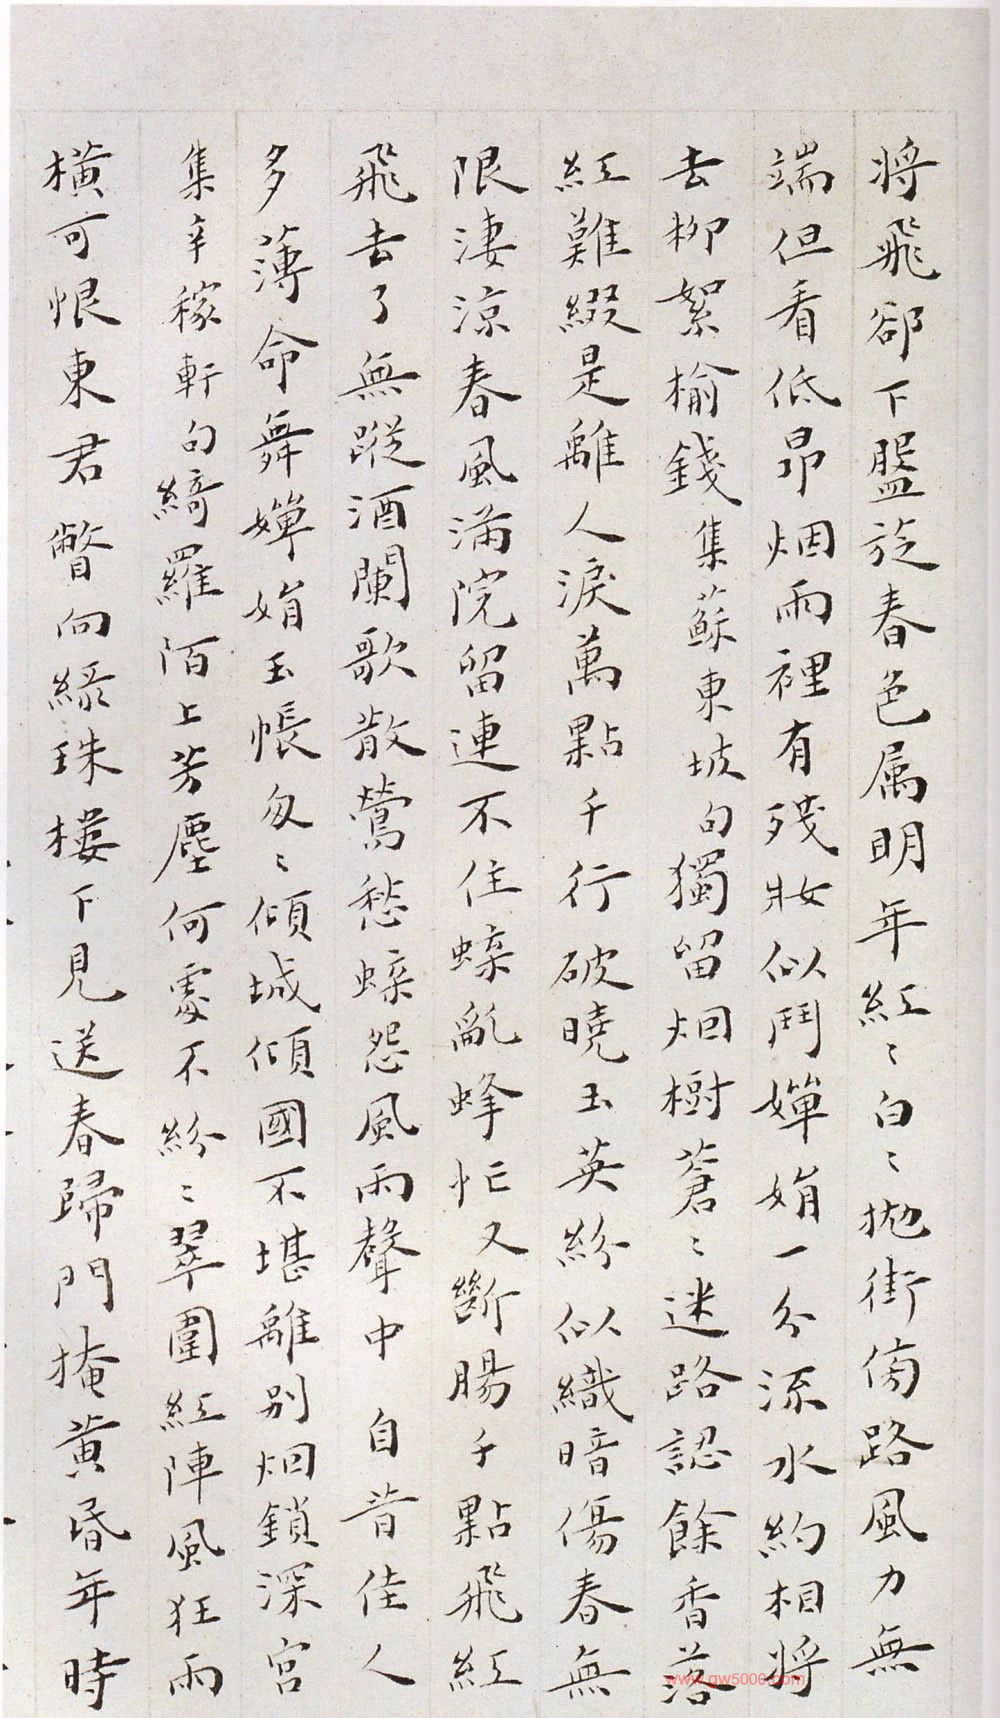 將飛卻下盤旋春色属明年紅〻白〻拋街傍路風力無
端但看低昂烟雨裡有殘妝似鬥嬋娟一分流水約相將
去柳絮榆錢集蘇東坡句獨留烟樹蒼〻迷路認餘香落
紅難綴是離人淚萬點千行破曉玉英紛似織暗傷春無
限淒涼春風滿院留連不住蝶亂蜂忙又斷腸千點飛紅
飛去了無蹤酒闌歌散鶯愁蝶怨風雨聲中 自昔佳人
多薄命舞嬋娟玉帳匆〻傾城傾國不堪離別烟鎖深宮
集辛稼軒句綺羅陌上芳塵何處不紛〻翠圍紅陣風狂雨
橫可恨東君瞥向綠珠樓下見送春歸門掩黃昏年時
www.gw5000.com